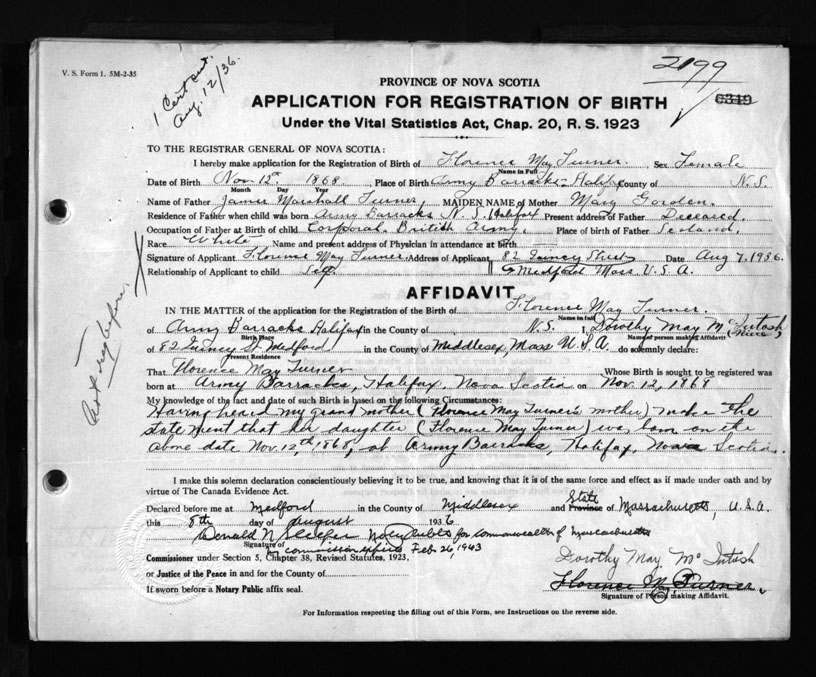 V. S. Form 1. 5M-2-35
1 Cert out.
Aug. 12/36
2199
6349
PROVINCE OF NOVA SCOTIA
APPLICATION FOR REGISTRATION OF BIRTH
Under the Vital Statistics Act, Chap. 20, R. S. 1923
TO THE REGISTRAR GENERAL OF NOVA SCOTIA:
I hereby make application for the Registration of Birth of Florence May Turner. Sex Female
Name in Full
Date of Birth Nov. 12th 1868. Place of Birth Army Barracks Halifax County of N.S.
Month Day Year
Name of Father James Marshall Turner, MAIDEN NAME of Mother Mary Gorden.
Residence of Father when child was born Army Barracks N.S. Halifax Present address of Father Deceased.
Occupation of Father at Birth of child Corporal British Army. Place of birth of Father Scotland.
Race White Name and present address of Physician in attendance at birth
Signature of Applicant Florence May Turner. Address of Applicant 82 Quincy Street Date Aug 7, 1936.
Relationship of Applicant to child Self. Medford Mass. U.S.A.
Not reg before.
AFFIDAVIT
IN THE MATTER of the application for the Registration of the Birth of Florence May Turner.
Name in full
of Army Barracks Halifax in the County of N.S. I, Dorothy May McIntosh (niece)
Birth Place Name of person making Affidavit
of 82 Quincy St. Medford in the County of Middlesex, Mass U.S.A. do solemnly declare:
Present Residence
That Florence May Turner Whose Birth is sought to be registered was
born at Army Barracks, Halifax, Nova Scotia on Nov. 12, 1868
My knowledge of the fact and date of such Birth is based on the following Circumstances:
Having heard my grandmother (Florence May Turner's mother) make the
statement that her daughter (Florence May Turner) was born on the
above date Nov. 12th, 1868, at Army Barracks, Halifax, Nova Scotia.
I make this solemn declaration conscientiously believing it to be true, and knowing that it is of the same force and effect as if made under oath and by
virtue of The Canada Evidence Act.
Declared before me at Medford in the County of Middlesex and State Province of Massachusetts, U.S.A.
this 8th day of August 1936
Donald N. Sleeper Notary Public for Commonwealth of Massachusetts
Signature of
my commission expires Feb. 26, 1943
Commissioner under Section 5, Chapter 38, Revised Statutes, 1923,
Dorothy May McIntosh
or Justice of the Peace in and for the County of
Florence M. Turner.
Signature of Person making Affidavit.
If sworn before a Notary Public affix seal.
For Information respecting the filling out of this Form, see Instructions on the reverse side.